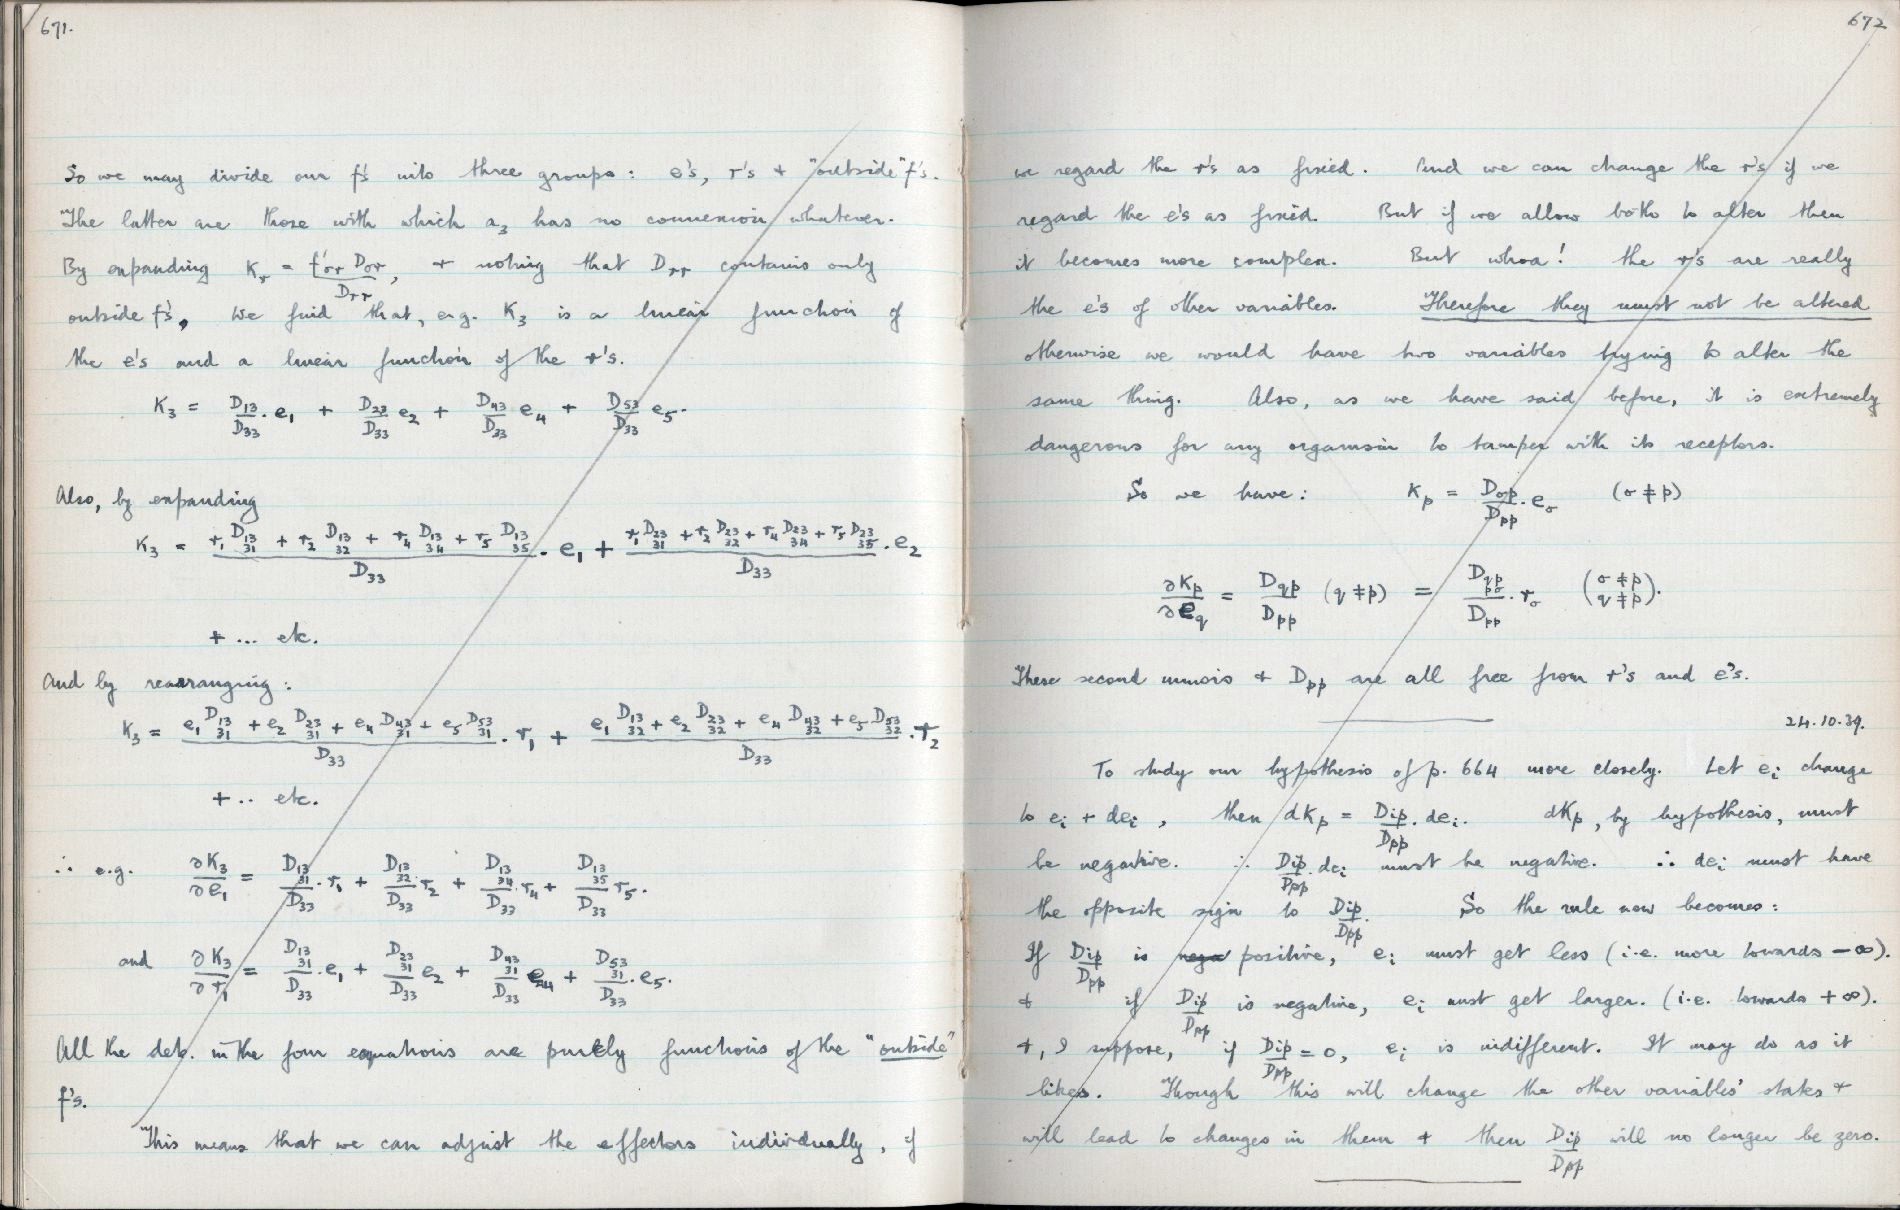 671.
So we may divide our f's into three groups: e's, r's + "outside" f's.
The latter are those with which a₃ has no connexion whatever.
By expanding Kᵣ = f'σr Dσr / Drr, + noting that Drr contains only
outside f's, we find that, e.g. K₃ is a linear function of
the e's and a linear function of the r's.
K₃ = D₁₃/D₃₃ . e₁ + D₂₃/D₃₃ e₂ + D₄₃/D₃₃ e₄ + D₅₃/D₃₃ e₅.
Also, by expanding
K₃ = (r₁ D13,31 + r₂ D13,32 + r₄ D13,34 + r₅ D13,35)/D₃₃ . e₁ + (r₁ D23,31 + r₂ D23,32 + r₄ D23,34 + r₅ D23,35)/D₃₃ . e₂
+ ... etc.
And by rearranging:
K₃ = (e₁ D13,31 + e₂ D23,31 + e₄ D43,31 + e₅ D53,31)/D₃₃ . r₁ + (e₁ D13,32 + e₂ D23,32 + e₄ D43,32 + e₅ D53,32)/D₃₃ . r₂
+ .. etc.
∴ e.g. ∂K₃/∂e₁ = D13,31/D₃₃ . r₁ + D13,32/D₃₃ . r₂ + D13,34/D₃₃ . r₄ + D13,35/D₃₃ r₅.
and ∂K₃/∂r₁ = D13,31/D₃₃ . e₁ + D23,31/D₃₃ e₂ + D43,31/D₃₃ e₄ + D53,31/D₃₃ . e₅.
All the dets. in the four equations are purely functions of the "outside"
f's.
This means that we can adjust the effectors individually, if
672
we regard the r's as fixed. And we can change the r's if we
regard the e's as fixed. But if we allow both to alter then
it becomes more complex. But whoa! the r's are really
the e's of other variables. Therefore they must not be altered
otherwise we would have two variables trying to alter the
same thing. Also, as we have said before, it is extremely
dangerous for any organism to tamper with its receptors.
So we have: Kp = Dσp/Dpp . eσ (σ ≠ p)
∂Kp/∂eq = Dqp/Dpp (q ≠ p) = Dqp,pσ/Dpp . rσ (σ ≠ p, q ≠ p).
These second minors + Dpp are all free from r's and e's.
24.10.39.
To study our hypothesis of p. 664 more closely. Let eᵢ change
to eᵢ + deᵢ, then dKp = Dip/Dpp . deᵢ. dKp, by hypothesis, must
be negative. ∴ Dip/Dpp . deᵢ must be negative. ∴ deᵢ must have
the opposite sign to Dip/Dpp. So the rule now becomes:
If Dip/Dpp is positive, eᵢ must get less (i.e. more towards −∞).
+ if Dip/Dpp is negative, eᵢ must get larger. (i.e. towards +∞).
+, I suppose, if Dip/Dpp = 0, eᵢ is indifferent. It may do as it
likes. Though this will change the other variables' states +
will lead to changes in them + then Dip/Dpp will no longer be zero.